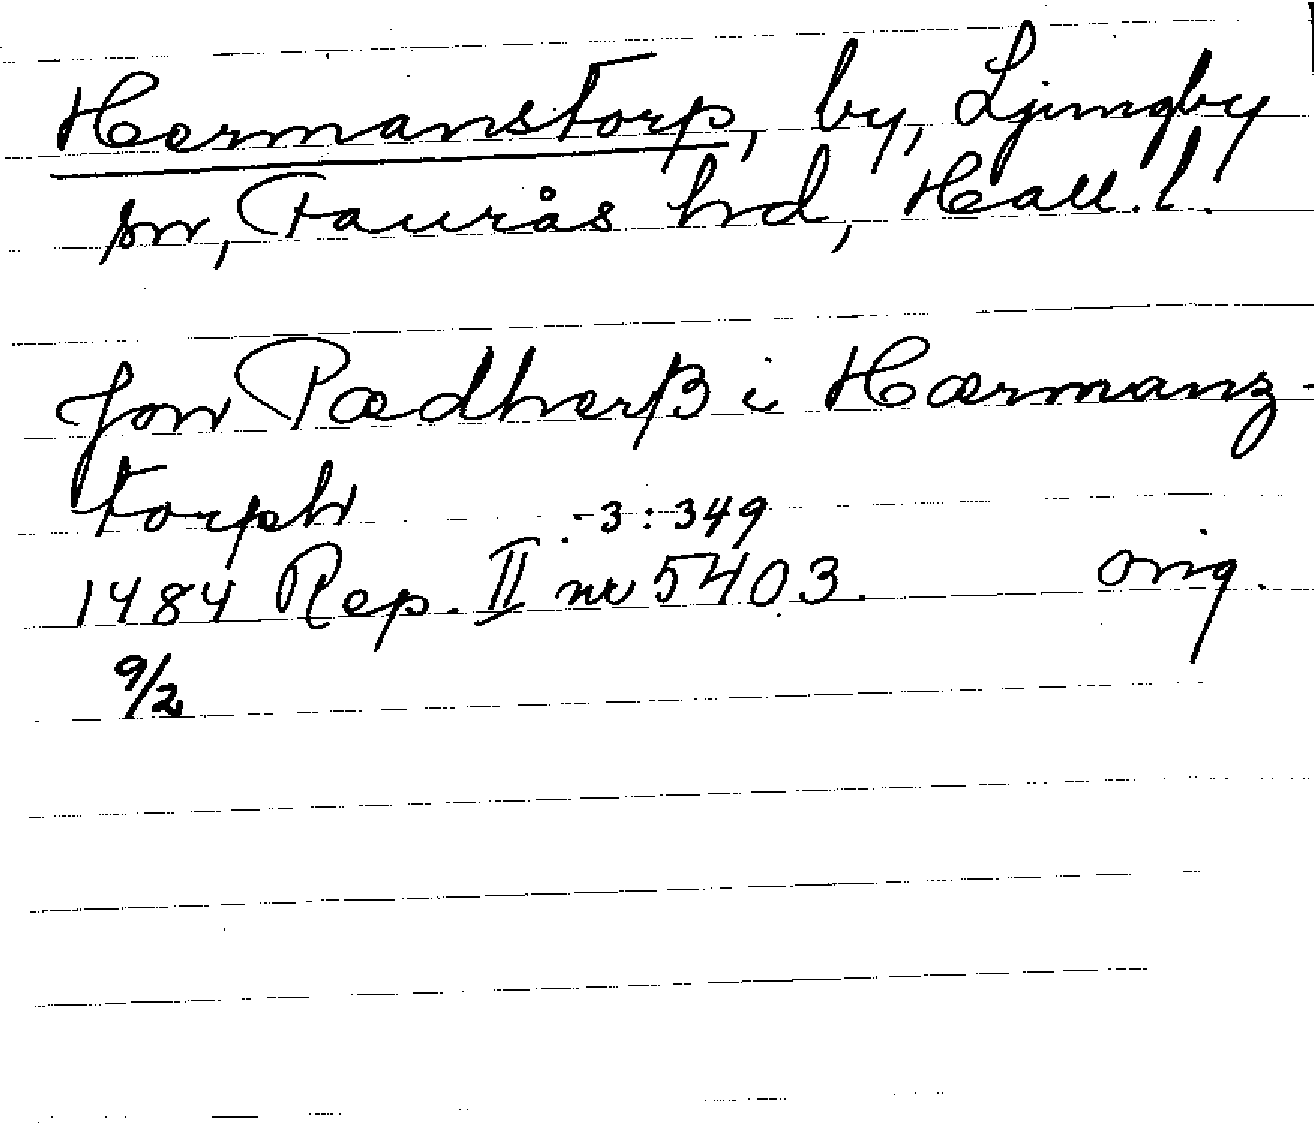 Hermanstorp, by, Ljungby
sn, Faurås hd, Hall. l.
Jon Pædherß i Hærmanz-
torph
-3:349
1484 Rep. II nr 5403. orig.
9/2